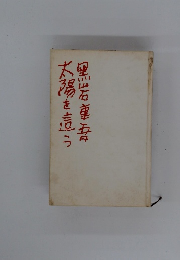 黒岩重吾
太陽を這う